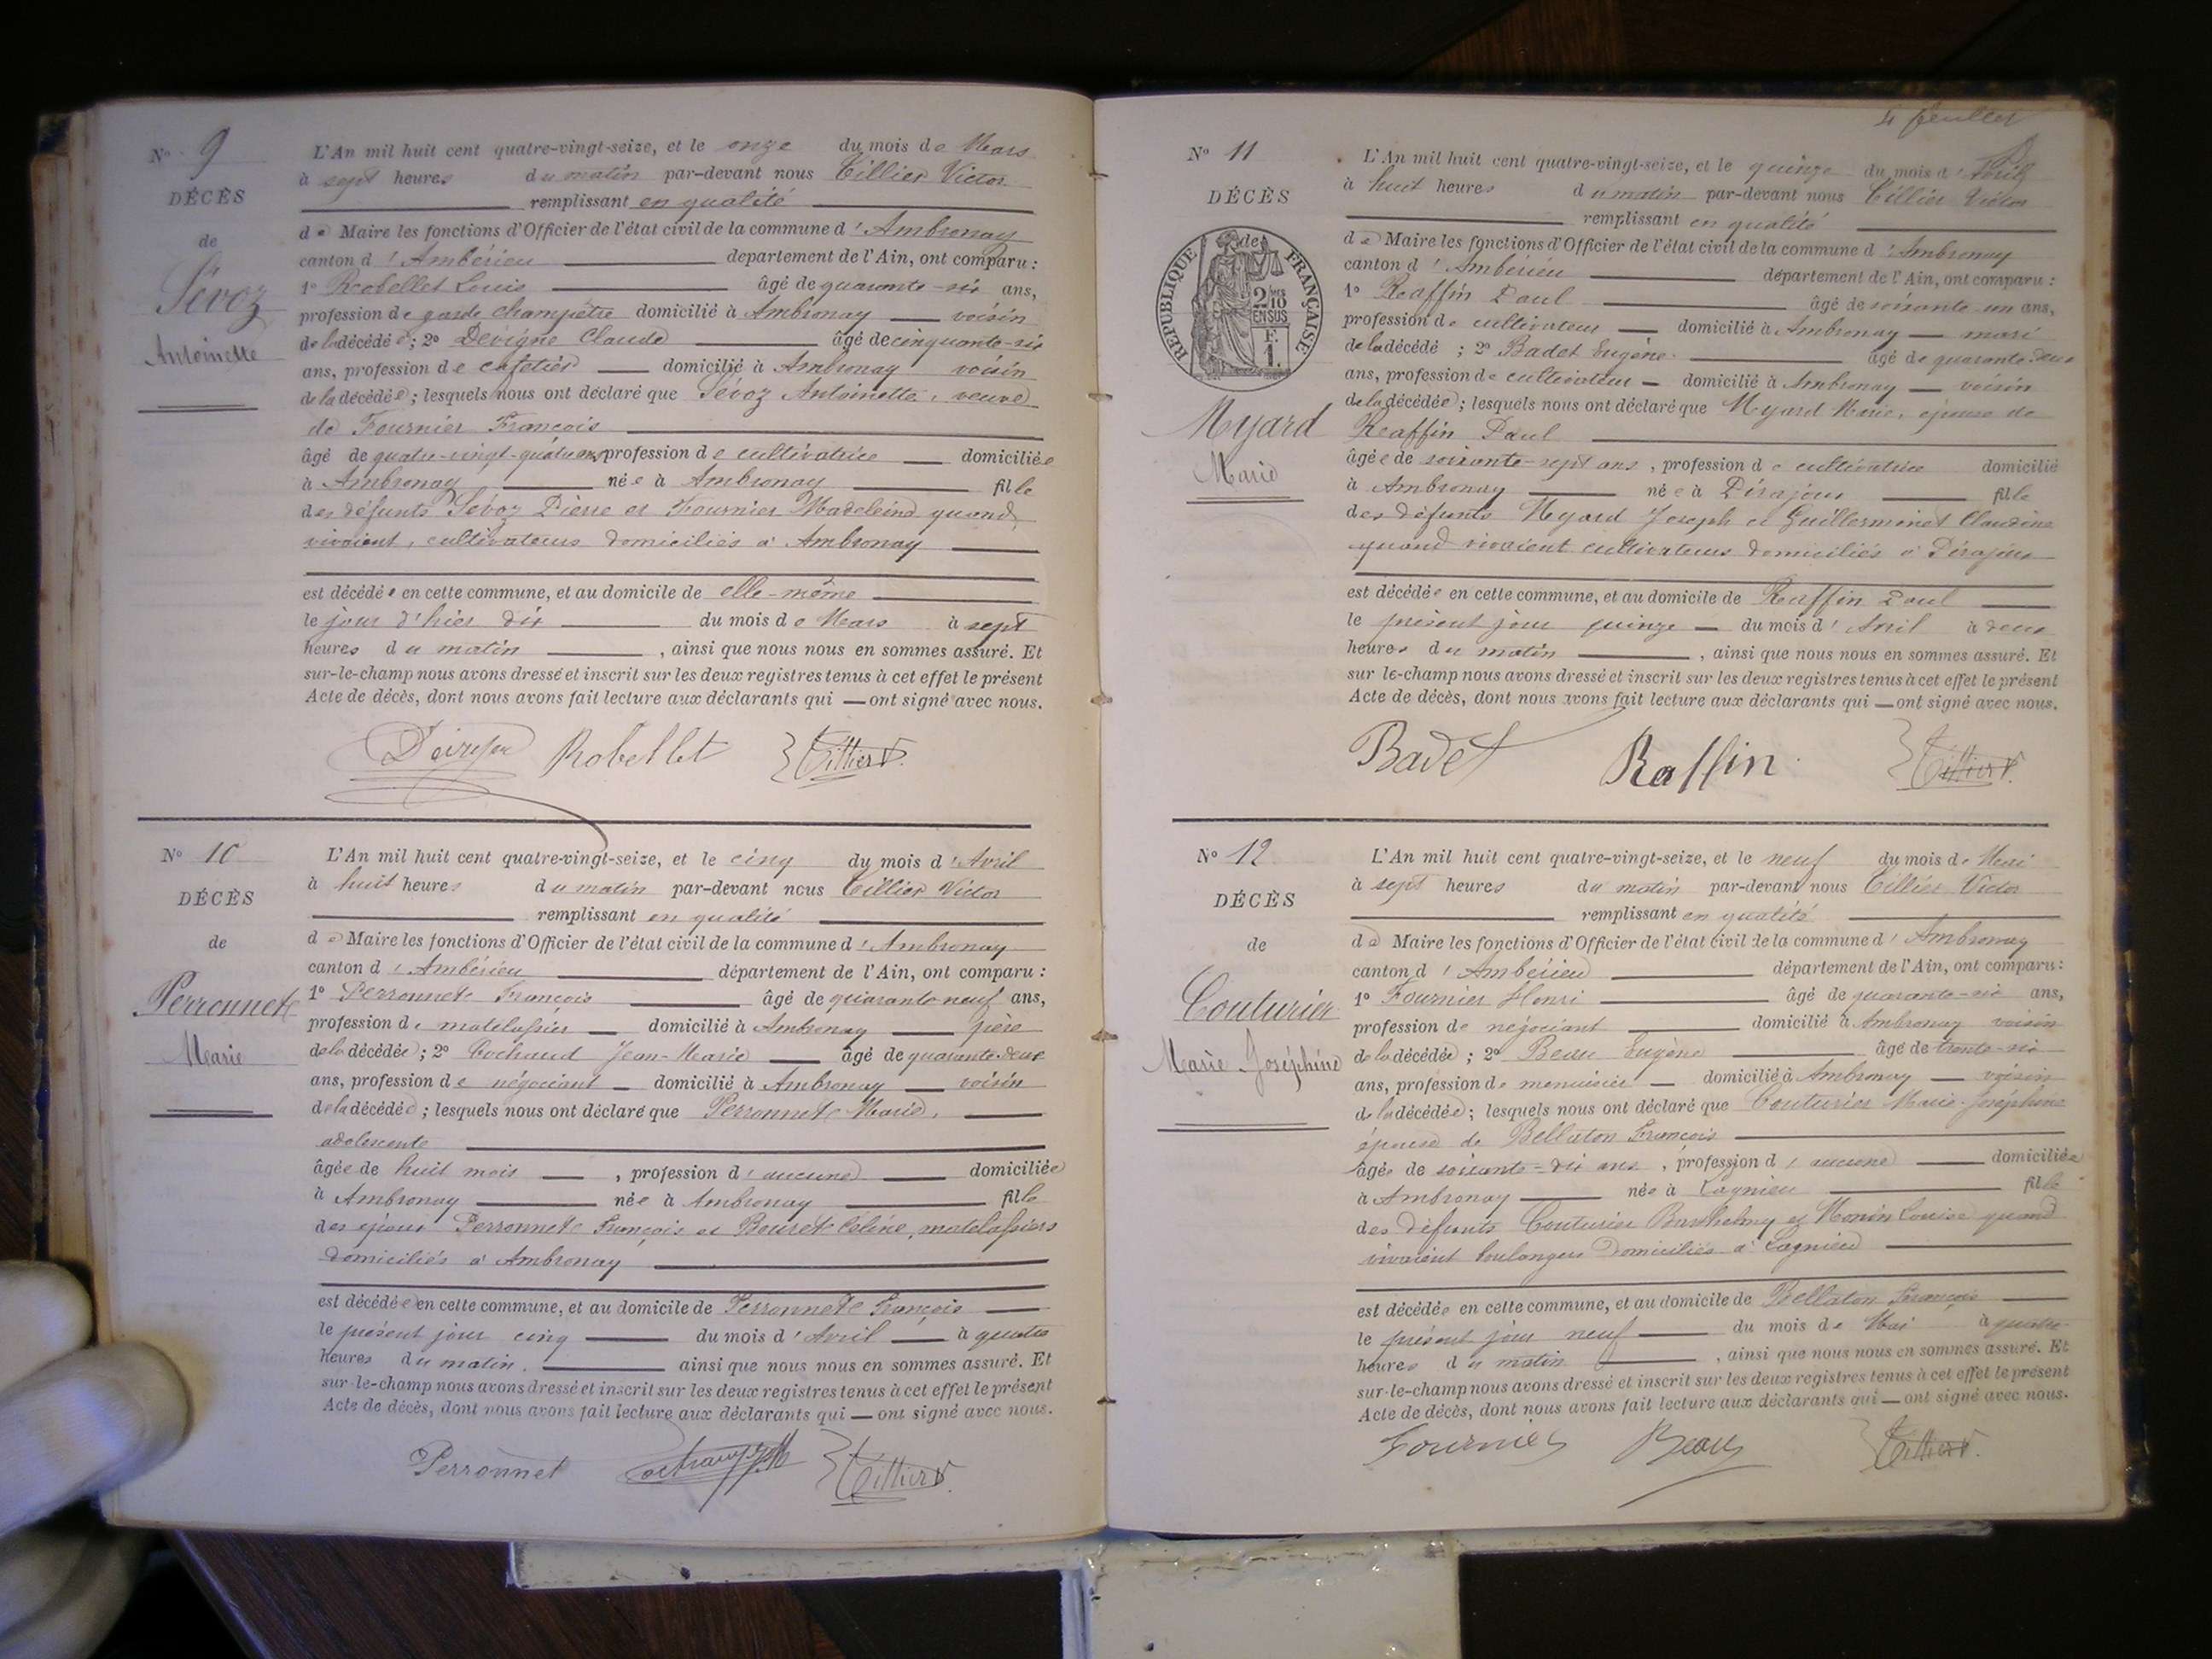 N° 9
DÉCÈS
de
Sévoz
Antoinette
L'An mil huit cent quatre-vingt-seize, et le onze du mois de Mars
à sept heures du matin par-devant nous Tillier Victor
remplissant en qualité
de Maire les fonctions d'Officier de l'état civil de la commune d'Ambronay
canton d'Ambérieu département de l'Ain, ont comparu :
1° Robellet Louis âgé de quarante-six ans,
profession de garde champêtre domicilié à Ambronay voisin
de la décédée ; 2° Devigne Claude âgé de cinquante-six
ans, profession de cafetier domicilié à Ambronay voisin
de la décédée ; lesquels nous ont déclaré que Sévoz Antoinette, veuve
de Fournier François
âgé de quatre-vingt-quatre ans profession de cultivatrice domiciliée
à Ambronay née à Ambronay fille
des défunts Sévoz Pierre et Fournier Madeleine quand
vivaient, cultivateurs domiciliés à Ambronay
est décédée en cette commune, et au domicile de elle-même
le jour d'hier dix du mois de Mars à sept
heures du matin , ainsi que nous nous en sommes assuré. Et
sur-le-champ nous avons dressé et inscrit sur les deux registres tenus à cet effet le présent
Acte de décès, dont nous avons fait lecture aux déclarants qui — ont signé avec nous.
Robellet Tillier V.
N° 10
DÉCÈS
de
Perronnete
Marie
L'An mil huit cent quatre-vingt-seize, et le cinq du mois d'Avril
à huit heures du matin par-devant nous Tillier Victor
remplissant en qualité
de Maire les fonctions d'Officier de l'état civil de la commune d'Ambronay
canton d'Ambérieu département de l'Ain, ont comparu :
1° Perronnete François âgé de quarante neuf ans,
profession de matelassier domicilié à Ambronay père
de la décédée ; 2° Cochaud Jean-Marie âgé de quarante-deux
ans, profession de négociant domicilié à Ambronay voisin
de la décédée ; lesquels nous ont déclaré que Perronnete Marie,
adolescente
âgée de huit mois , profession d'aucune domiciliée
à Ambronay née à Ambronay fille
des époux Perronnete François et Bouréte Céline, matelassiers
domiciliés à Ambronay
est décédée en cette commune, et au domicile de Perronnete François
le présent jour cinq du mois d'Avril à quatre
heures du matin, ainsi que nous nous en sommes assuré. Et
sur-le-champ nous avons dressé et inscrit sur les deux registres tenus à cet effet le présent
Acte de décès, dont nous avons fait lecture aux déclarants qui — ont signé avec nous.
Perronnet Tillier V.
4 feuillet
N° 11
DÉCÈS
RÉPUBLIQUE FRANÇAISE
de
2/10
EN SUS
F.
1.
Myard
Marie
L'An mil huit cent quatre-vingt-seize, et le quinze du mois d'Avril
à huit heures du matin par-devant nous Tillier Victor
remplissant en qualité
de Maire les fonctions d'Officier de l'état civil de la commune d'Ambronay
canton d'Ambérieu département de l'Ain, ont comparu :
1° Raffin Paul âgé de soixante un ans,
profession de cultivateur domicilié à Ambronay mari
de la décédé ; 2° Badet Eugène âgé de quarante-deux
ans, profession de cultivateur domicilié à Ambronay voisin
de la décédée ; lesquels nous ont déclaré que Myard Marie, épouse de
Raffin Paul
âgée de soixante-sept ans , profession de cultivatrice domicilié
à Ambronay née à Pérajoux fille
des défunts Myard Joseph et Guillerminet Claudine
quand vivaient cultivateurs domiciliés à Pérajoux
est décédée en cette commune, et au domicile de Raffin Paul
le présent jour quinze du mois d'Avril à deux
heures du matin , ainsi que nous nous en sommes assuré. Et
sur-le-champ nous avons dressé et inscrit sur les deux registres tenus à cet effet le présent
Acte de décès, dont nous avons fait lecture aux déclarants qui — ont signé avec nous.
Badet Raffin Tillier V.
N° 12
DÉCÈS
de
Couturier
Marie Joséphine
L'An mil huit cent quatre-vingt-seize, et le neuf du mois de Mai
à sept heures du matin par-devant nous Tillier Victor
remplissant en qualité
de Maire les fonctions d'Officier de l'état civil de la commune d'Ambronay
canton d'Ambérieu département de l'Ain, ont comparu :
1° Fournier Henri âgé de quarante-six ans,
profession de négociant domicilié à Ambronay voisin
de la décédée ; 2° Beau Eugène âgé de trente-six
ans, profession de menuisier domicilié à Ambronay voisin
de la décédée ; lesquels nous ont déclaré que Couturier Marie-Joséphine
épouse de Bellaton François
âgée de soixante-dix ans , profession d'aucune domiciliée
à Ambronay née à Lagnieu fille
des défunts Couturier Barthelmy et Monin Louise quand
vivaient boulangers domiciliés à Lagnieu
est décédée en cette commune, et au domicile de Bellaton François
le présent jour neuf du mois de Mai à quatre
heures du matin , ainsi que nous nous en sommes assuré. Et
sur-le-champ nous avons dressé et inscrit sur les deux registres tenus à cet effet le présent
Acte de décès, dont nous avons fait lecture aux déclarants qui — ont signé avec nous.
Fournier Beau Tillier V.